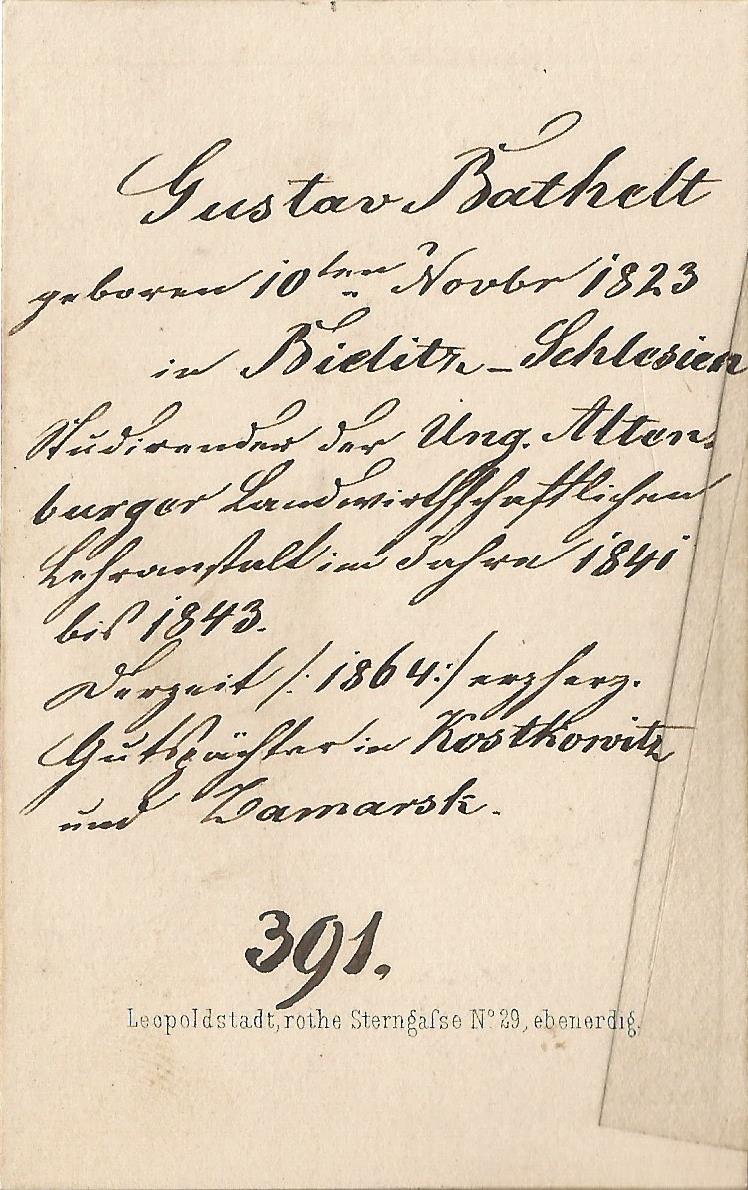 Gustav Bathelt
geboren 10ten Novbr 1823
in Bielitz-Schlesien
Studirender der Ung. Alten-
burger Landwirthschaftlichen
Lehranstalt im Jahre 1841
bis 1843.
Derzeit /: 1864 :/ erzherz.
Gutspächter in Kostkowitz
und Zamarsk.
391.
Leopoldstadt, rothe Sterngaſse No 29, ebenerdig.